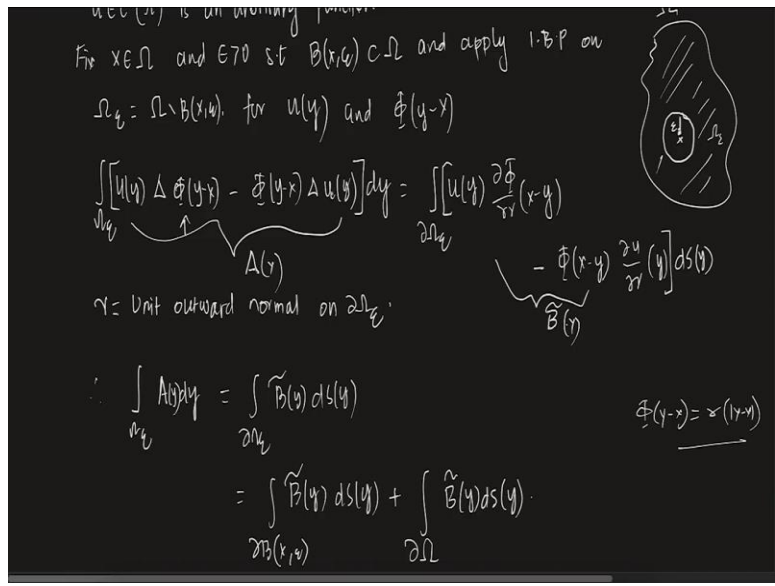 u ∈ C²(Ω̄) is an arbitrary function.
Fix x∈Ω and ϵ>0 s.t B(x,ε) ⊂ Ω and apply I.B.P on
Ω_ε = Ω∖B(x,ε). for u(y) and Φ(y-x)
∫_{Ω_ε} [u(y) Δ Φ(y-x) - Φ(y-x) Δ u(y)] dy = ∫_{∂Ω_ε} [u(y) ∂Φ/∂γ (x-y)
- Φ(x-y) ∂u/∂γ (y)] ds(y)
A(y)
B̃(y)
γ = Unit outward normal on ∂Ω_ε.
∴ ∫_{Ω_ε} A(y)dy = ∫_{∂Ω_ε} B̃(y) ds(y)
Φ(y-x) = γ(|y-x|)
= ∫_{∂B(x,ε)} B̃(y) ds(y) + ∫_{∂Ω} B̃(y) ds(y).
Ω_ε
ε
x